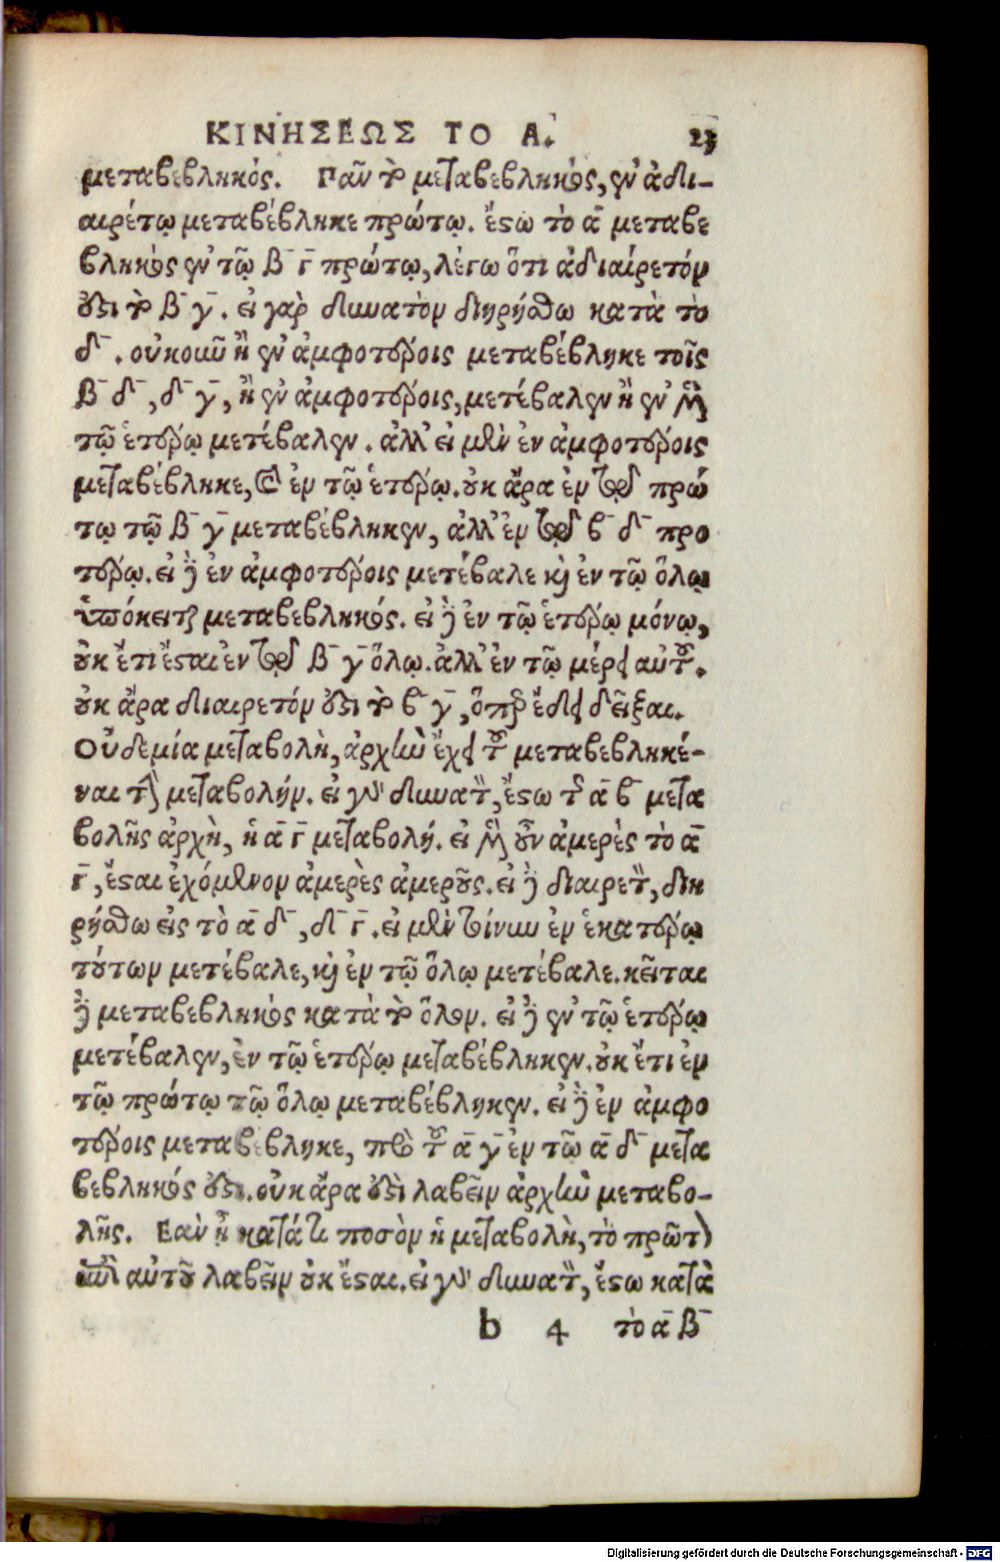 ΚΙΝΗΣΕΩΣ ΤΟ Α. 23
μεταβεβληκός. Πᾶν τὸ μεταβεβληκός, ἐν ἀδι-
αιρέτῳ μεταβέβληκε πρώτῳ. ἔστω τὸ α̅ μεταβε
βληκὸς ἐν τῷ β̅ γ̅ πρώτῳ, λέγω ὅτι ἀδιαίρετόν
ὅστι τὸ β̅ γ̅. εἰ γὰρ δυνατὸν διῃρήσθω κατὰ τὸ
δ̅. οὐκοῦν ἢ ἐν ἀμφοτέροις μεταβέβληκε τοῖς
β̅ δ̅, δ̅ γ̅, ἢ ἐν ἀμφοτέροις, μετέβαλεν ἢ ἐν μὲν
τῷ ἑτέρῳ μετέβαλεν. ἀλλ' εἰ μὲν ἐν ἀμφοτέροις
μεταβέβληκε, καὶ ἐν τῷ ἑτέρῳ. οὐκ ἄρα ἐν τῷ πρώ
τῳ τῷ β̅ γ̅ μεταβέβληκεν, ἀλλ' ἐν τῷ β̅ δ̅ προ
τέρῳ. εἰ δὲ ἐν ἀμφοτέροις μετέβαλε καὶ ἐν τῷ ὅλῳ
ὑπόκειται μεταβεβληκός. εἰ δὲ ἐν τῷ ἑτέρῳ μόνῳ,
οὐκ ἔτι ἔσται ἐν τῷ β̅ γ̅ ὅλῳ. ἀλλ' ἐν τῷ μέρει αὐτοῦ.
οὐκ ἄρα διαιρετόν ἐστι τὸ β̅ γ̅, ὅπερ ἔδει δεῖξαι.
Οὐδεμία μεταβολὴ, ἀρχὴν ἔχει τοῦ μεταβεβληκέ-
ναι τὴν μεταβολήν. εἰ γὰρ δυνατὸν, ἔστω τῆς α̅ β̅ μετα
βολῆς ἀρχὴ, ἡ α̅ γ̅ μεταβολή. εἰ μὲν οὖν ἀμερὲς τὸ α̅
γ̅, ἔσται ἐχόμενον ἀμερὲς ἀμεροῦς. εἰ δὲ διαιρετὸν, διη
ρήσθω εἰς τὸ α̅ δ̅, δ̅ γ̅. εἰ μὲν τοίνυν ἐν ἑκατέρῳ
τούτων μετέβαλε, καὶ ἐν τῷ ὅλῳ μετέβαλε. κεῖται
δὲ μεταβεβληκὸς κατὰ τὸ ὅλον. εἰ δὲ ἐν τῷ ἑτέρῳ
μετέβαλεν, ἐν τῷ ἑτέρῳ μεταβέβληκεν. οὐκ ἔτι ἐν
τῷ πρώτῳ τῷ ὅλῳ μεταβέβληκεν. εἰ δὲ ἐν ἀμφο
τέροις μεταβέβληκε, πρὸ τοῦ α̅ γ̅ ἐν τῷ α̅ δ̅ μετα
βεβληκός ἐστι. οὐκ ἄρα ἐστὶ λαβεῖν ἀρχὴν μεταβο-
λῆς. Εὰν ᾖ κατά τι ποσὸν ἡ μεταβολὴ, τὸ πρῶτον
ἐπὶ αὐτοῦ λαβεῖν οὐκ ἔσται. εἰ γὰρ δυνατὸν, ἔστω κατὰ
b 4 τὸ α̅ β̅
Digitalisierung gefördert durch die Deutsche Forschungsgemeinschaft - DFG